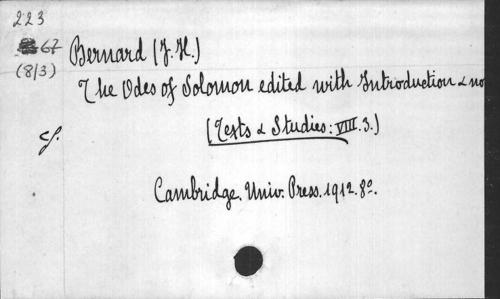 223
67 Bernard (J. H.)
(8/3) The Odes of Solomon edited with Introduction & no
cf. (Texts & Studies: VIII. 3.)
Cambridge. Univ. Press. 1912. 8º.